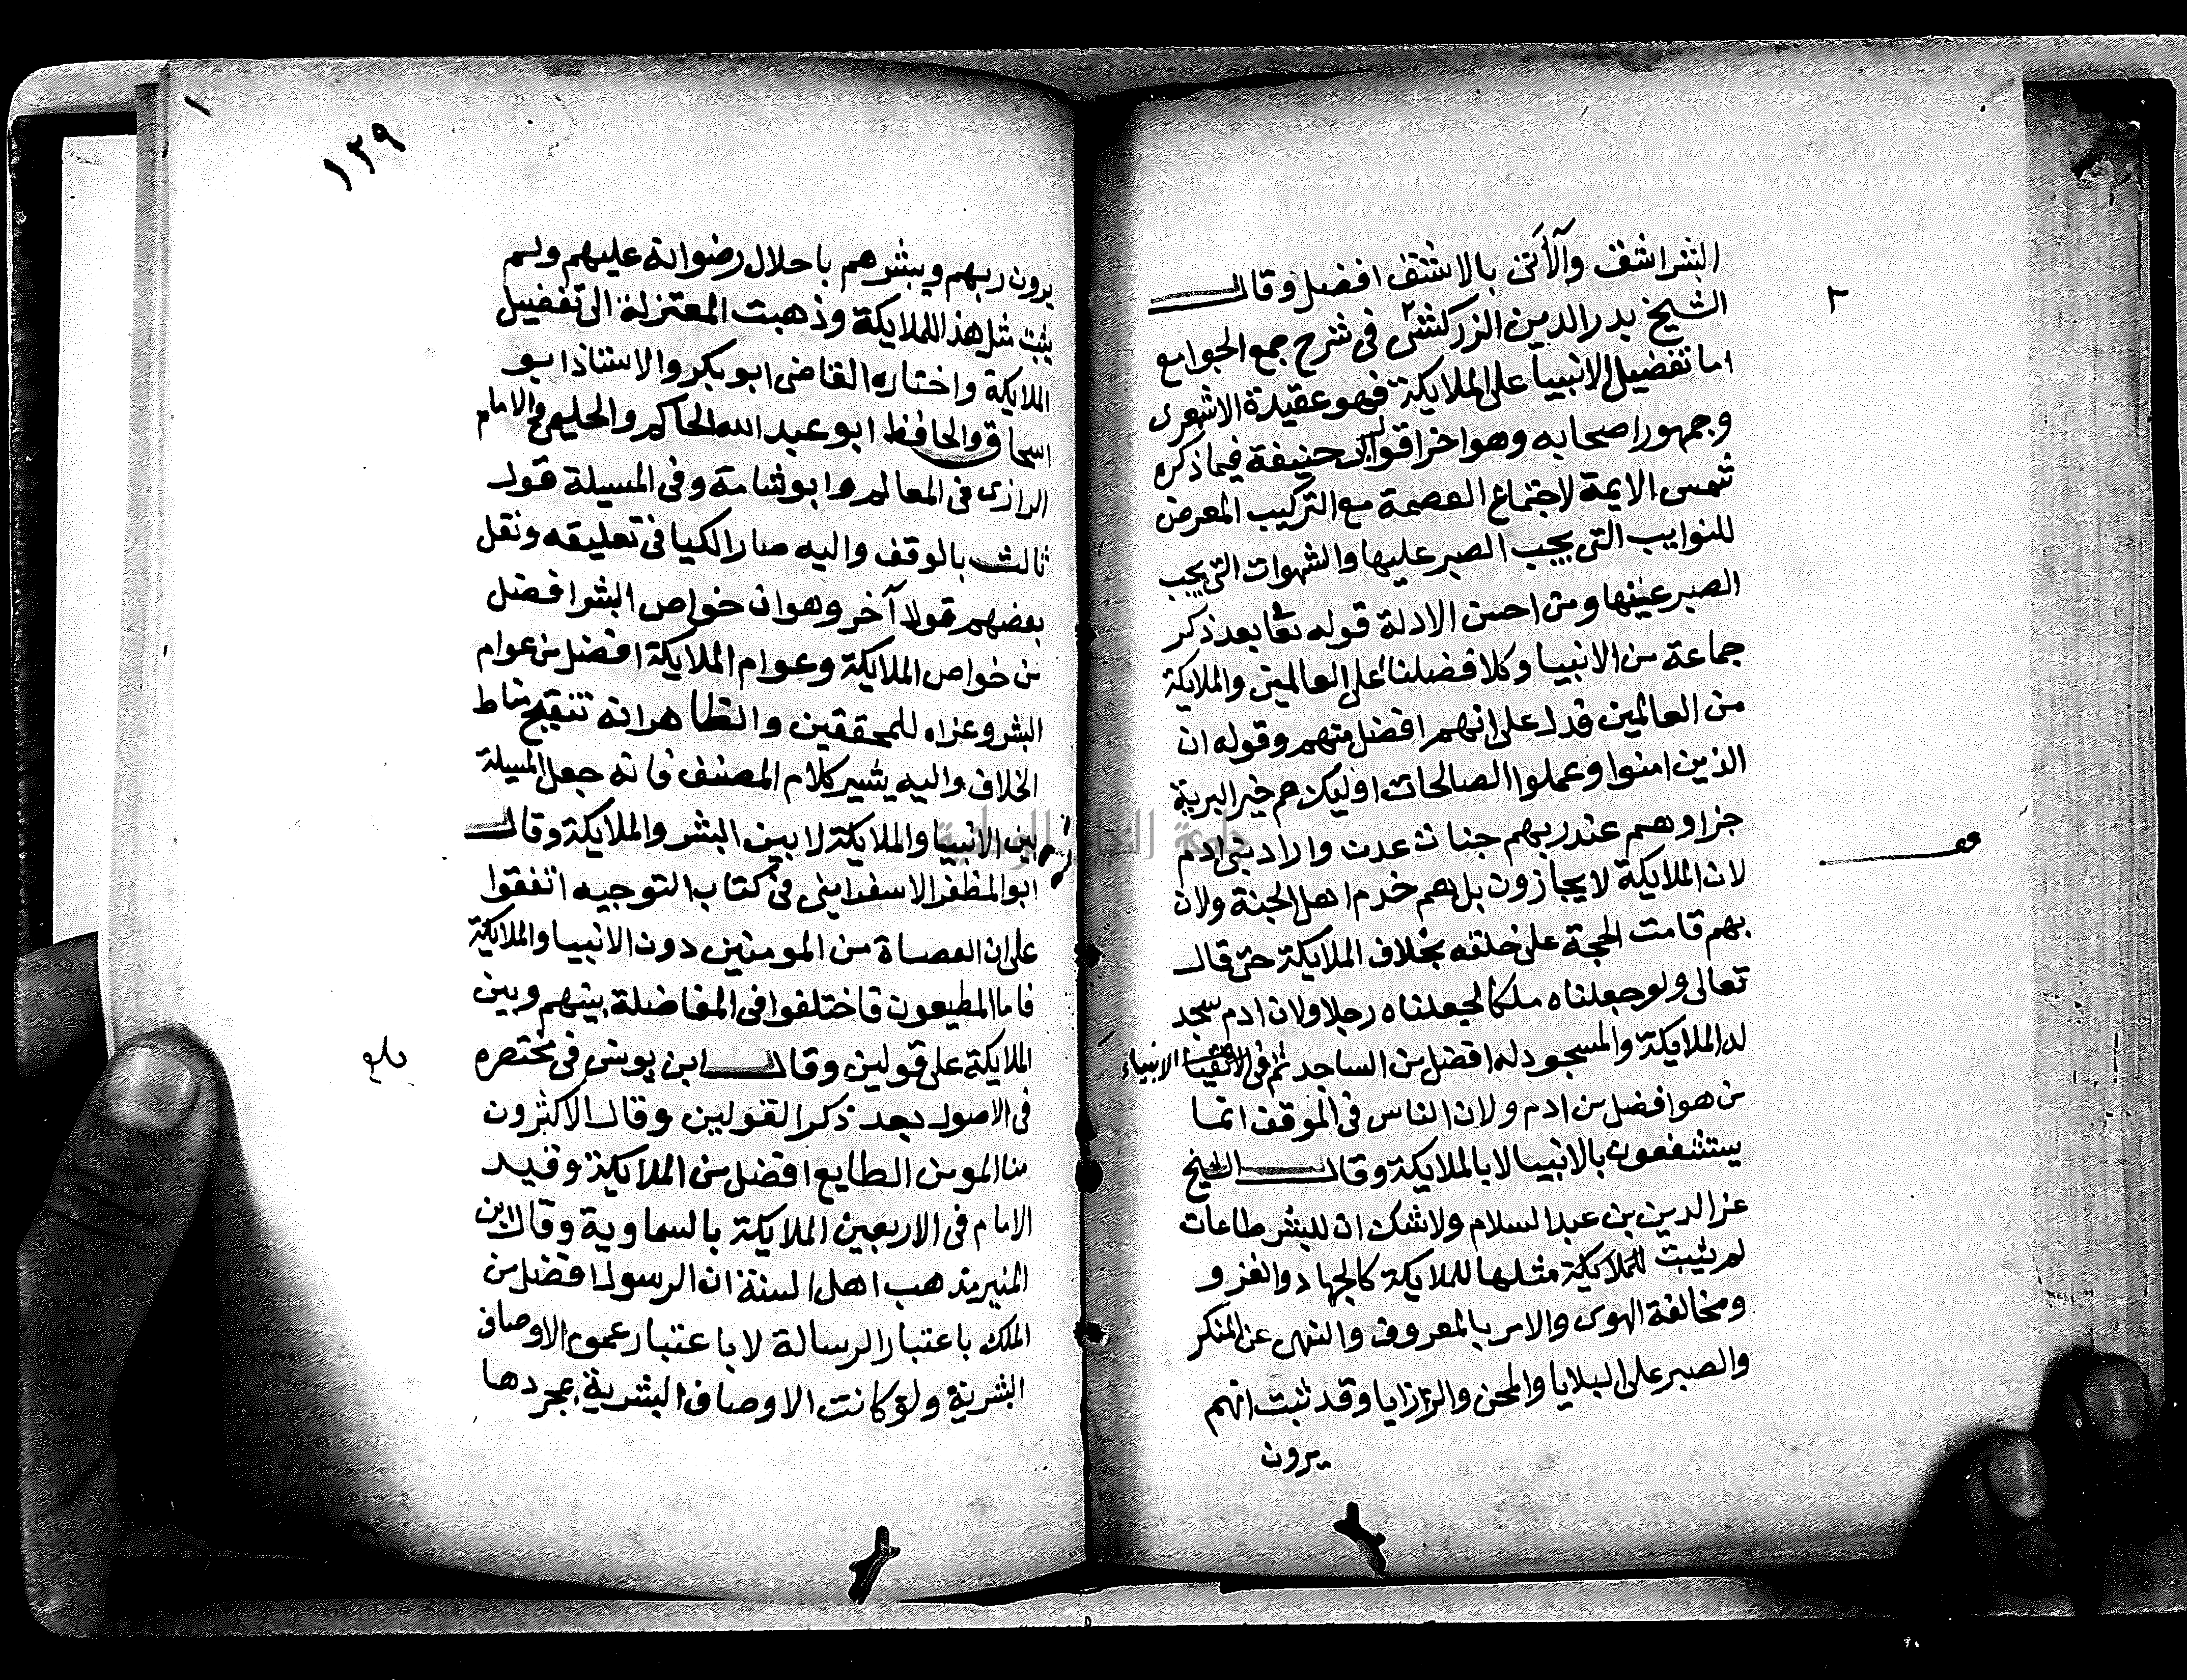 البشر اشق والآتى بالاشق افضل وقال
الشيخ بدر الدين الزركشى فى شرح جمع الجوامع
اما تفضيل الانبيا على الملايكة فهو عقيدة الاشعرى
وجمهور اصحابه وهو اخر اقوال ابى حنيفة فيما ذكره
شمس الايمة لاجتماع العصمة مع التركيب المعرض
للنوايب التى يجب الصبر عليها والشهوات التى يجب
الصبر عنها ومن احسن الادلة قوله تعا بعد ذكر
جماعة من الانبيا وكلا فضلنا على العالمين والملايكة
من العالمين فدل على انهم افضل منهم وقوله ان
الذين امنوا وعملوا الصالحات اوليك هم خير البرية
جزاوهم عند ربهم جنات عدن واراد بنى ادم
لان الملايكة لا يجازون بل هم خدم اهل الجنة ولان
بهم قامت الحجة على خلقه بخلاف الملايكة حتى قال
تعالى ولو جعلناه ملكا لجعلناه رجلا ولان ادم سجد
له الملايكة والمسجود له افضل من الساجد ثم فى الانبياء
من هو افضل من ادم ولان الناس فى الموقف انما
يستشفعون بالانبيا لا بالملايكة وقال الشيخ
عز الدين بن عبد السلام ولا شك ان للبشر طاعات
لم يثبت للملايكة مثلها للملايكة كالجهاد والغزو
ومخالفة الهوى والامر بالمعروف والنهى عن المنكر
والصبر على البلايا والمحن والرزايا وقد ثبت انهم
يرون
٢
قف
١٣٩
يرون ربهم ويبشرهم باحلال رضوانه عليهم ولم
يثبت مثل هذا للملايكة وذهبت المعتزلة الى تفضيل
الملايكة واختاره القاضى ابو بكر والاستاذ ابو
اسحاق والحافظ ابو عبد الله الحاكم والحليمى والامام
الرازى فى المعالم وابو شامة وفى المسيلة قول
ثالث بالوقف واليه صار الكيا فى تعليقه ونقل
بعضهم قولا آخر وهو ان خواص البشر افضل
من خواص الملايكة وعوام الملايكة افضل من عوام
البشر وعزاه للمحققين والظاهر انه تنقيح مناط
الخلاف واليه يشير كلام المصنف فانه جعل المسيلة
بين الانبيا والملايكة لا بين البشر والملايكة وقال
ابو المظفر الاسفراينى فى كتاب التوجيه اتفقوا
على ان العصاة من المومنين دون الانبيا والملايكة
فاما المطيعون فاختلفوا فى المفاضلة بينهم وبين
الملايكة على قولين وقال ابن يونس فى مختصره
فى الاصول بعد ذكر القولين وقال الاكثرون
منا المومن الطايع افضل من الملايكة وقيد
الامام فى الاربعين الملايكة بالسماوية وقال ابن
المنير مذهب اهل السنة ان الرسول افضل من
الملك باعتبار الرسالة لا باعتبار عموم الاوصاف
البشرية ولو كانت الاوصاف البشرية بمجردها
بلغ